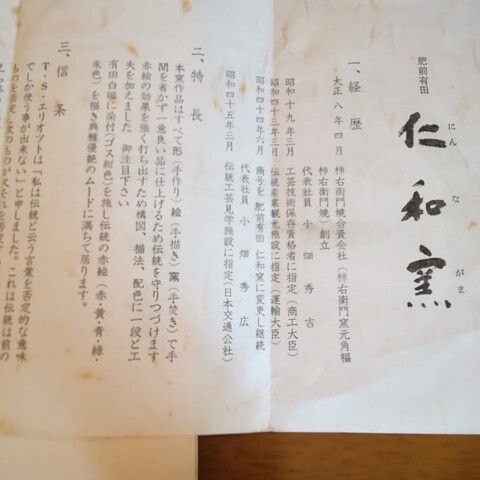 肥前有田
仁和窯
にんながま
一、経歴
大正八年四月 柿右衛門焼合資会社(柿右衛門窯元角福
柿右衛門焼)創立
代表社員 小畑秀吉
昭和十九年三月 工芸技術保存資格者に指定(商工大臣)
昭和四十三年三月 伝統産業観光施設に指定(運輸大臣)
昭和四十四年六月 商号を肥前有田 仁和窯に変更し継続
代表社員 小畑秀広
昭和四十五年三月 伝統工芸見学施設に指定(日本交通公社)
二、特長
本窯作品はすべて形(手作り)絵(手描き)窯(手焚き)で手
間を省かず一意良い品に仕上げるため伝統を守りつづけます
赤絵の効果を強く打ち出すため構図、描法、配色に一段と工
夫を加えました 御注目下さい
有田白磁に染付(ゴス紺色)を施し伝統の赤絵(赤・黄・青・緑・
朱色)を描き典雅優艶のムードに満ちて居ります。
三、信条
T・S・エリオットは「私は伝統と云う言葉を否定的な意味
でしか使う事が出来ない」と申しました。これは伝統は前の
ものを否定し次のものが又それを否定